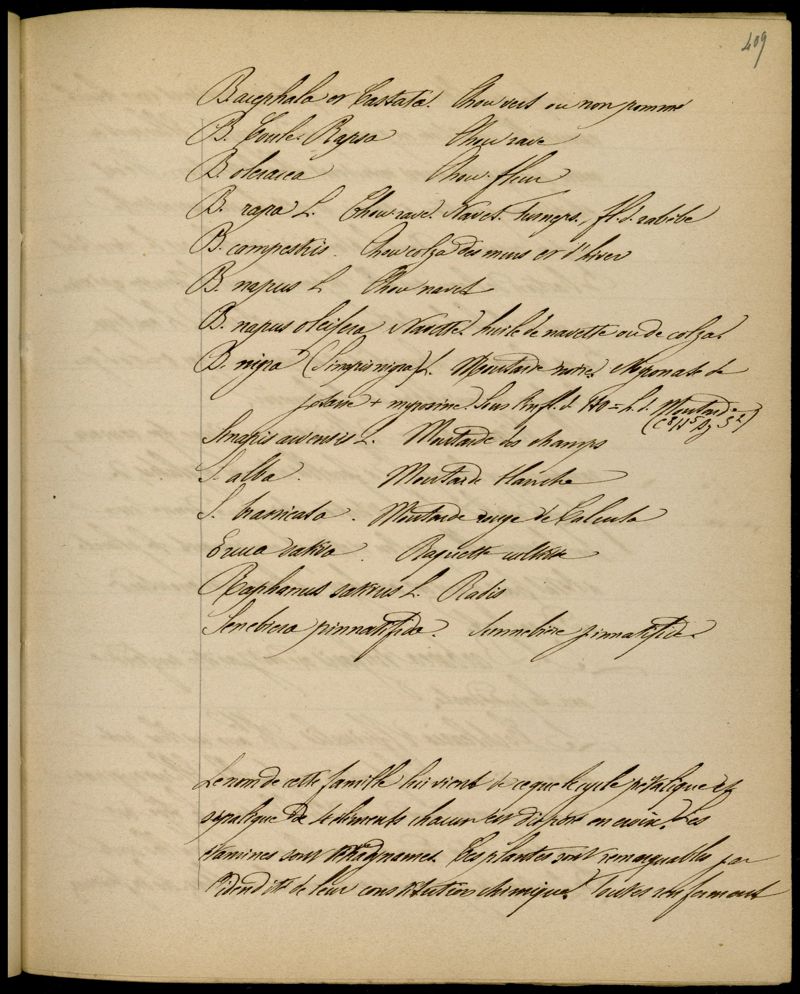 409
B. acephala et Costata. Chou vert ou non pommé
B. Caulo-Rapa Chou rave
B. oleracea Chou-fleur
B. rapa L. Chou rave. Navet. Turneps.
B. campestris. Chou colza des murs et d'hiver
B. napus L Chou navet
B. napus oleifera Navette. huile de navette ou de colza.
B. nigra (Sinapis nigra) L. Moutarde noire. Myronate de
potasse + myrosine. Sous l'infl. d. HO = h. d. Moutarde
(C8H5AzS2)
Sinapis arvensis L. Moutarde des champs
S. alba. Moutarde blanche
S. brassicata. Moutarde rouge de Calcuta
Eruca sativa. Roquette cultivée
Raphanus sativus L. Radis
Senebiera pinnatifida. Sennebière pinnatifide.
Le nom de cette famille lui vient de ce que le cycle pétalique et
sépalique de 4 éléments chacun est disposé en croix. Les
étamines sont tétradynames. Ces plantes sont remarquables par
l'identité de leur constitution chimique. Toutes renferment